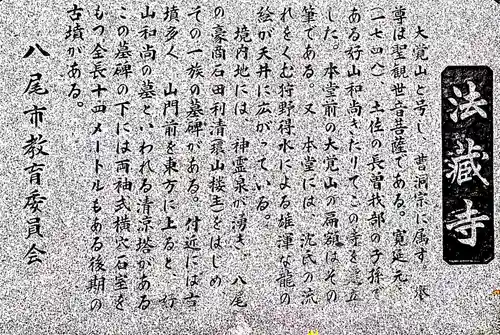 法藏寺
大覚山と号し、曹洞宗に属す。本
尊は聖観世音菩薩である。寛延元
(一七四八)土佐の長曽我部の子孫で
ある好山和尚きたりてこの寺を建立
した。本堂前の大覚山の扁額はその
筆である。又、本堂には、沈氏の流
れをくむ狩野得水による雄渾な龍の
絵が天井に広がっている。
境内地には、神霊泉が湧き、八尾
の豪商石田利清環山楼主をはじめ、
その一族の墓碑がある。付近には古
墳多く、山門前を東方に上ると、好
山和尚の墓といわれる清涼塔がある
この墓碑の下には両袖式横穴石室を
もつ全長十四メートルもある後期の
古墳がある。
八尾市教育委員会